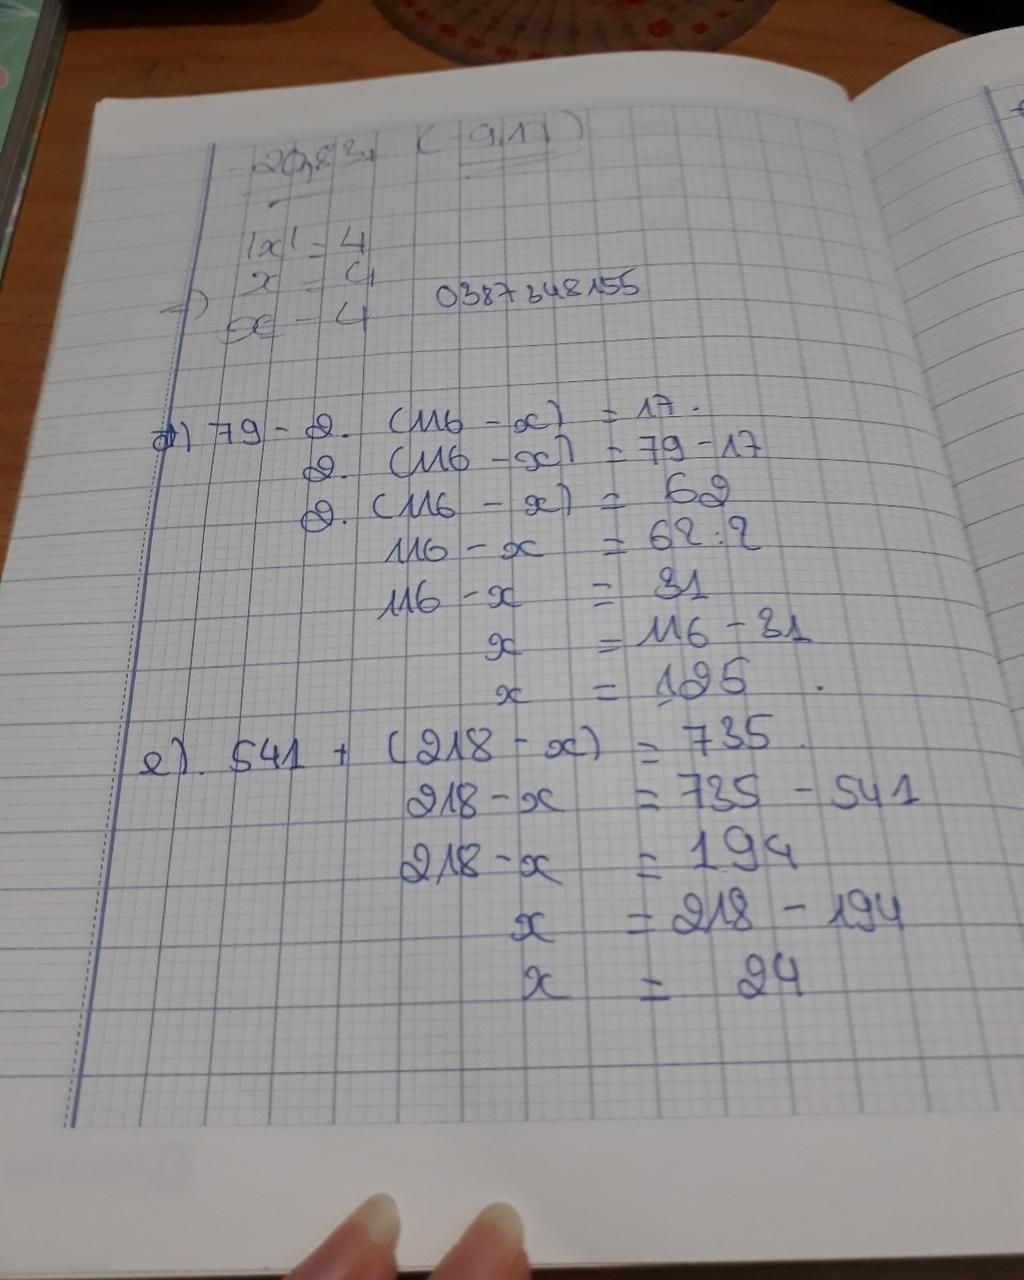 ( 91 )
|x| = 4
x = 4
x - 4
0387348155
d) 79 - 2. (116 - x) = 17.
2. (116 - x) = 79 - 17
2. (116 - x) = 62
116 - x = 62 : 2
116 - x = 31
x = 116 - 31
x = 125.
e). 541 + (218 - x) = 735.
218 - x = 735 - 541
218 - x = 194
x = 218 - 194
x = 24